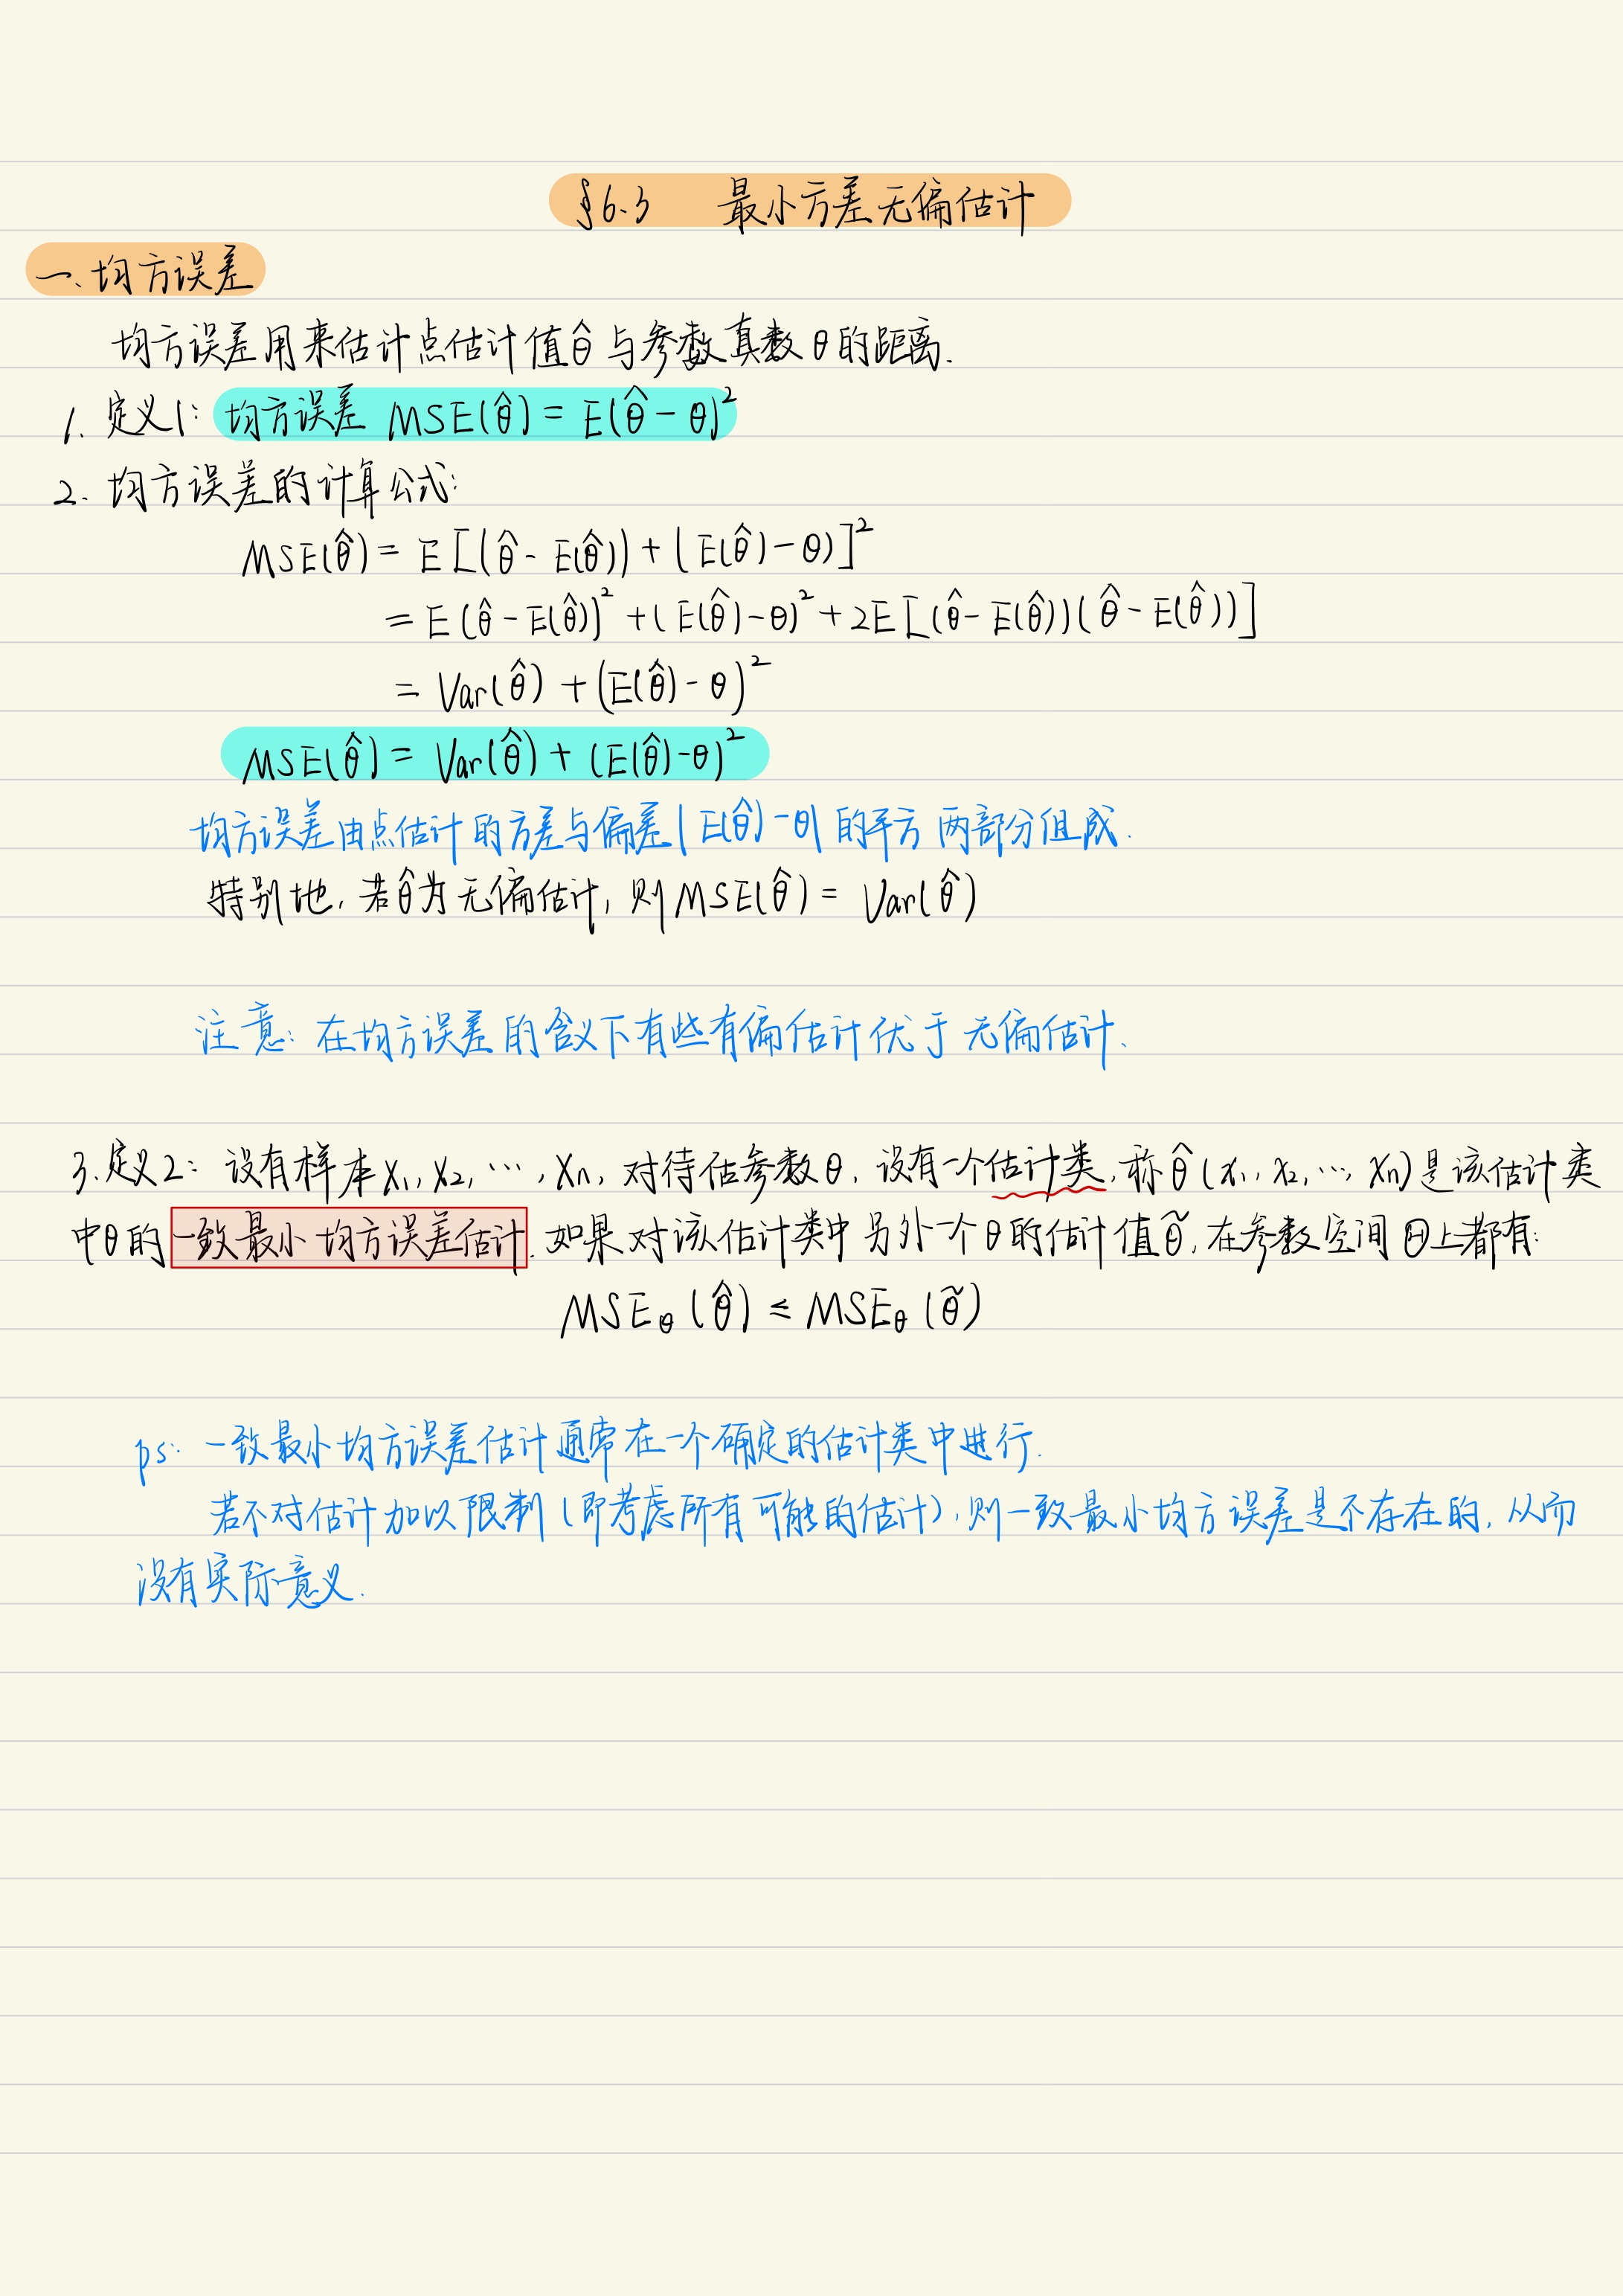 §6.3 最小方差无偏估计
一、均方误差
均方误差用来估计点估计值θ̂与参数真数θ的距离.
1. 定义1: 均方误差 MSE(θ̂) = E(θ̂ - θ)²
2. 均方误差的计算公式:
MSE(θ̂) = E[(θ̂ - E(θ̂)) + (E(θ̂) - θ)]²
= E(θ̂ - E(θ̂))² + (E(θ̂) - θ)² + 2E[(θ̂ - E(θ̂))(θ̂ - E(θ̂))]
= Var(θ̂) + (E(θ̂) - θ)²
MSE(θ̂) = Var(θ̂) + (E(θ̂) - θ)²
均方误差由点估计的方差与偏差|E(θ̂) - θ|的平方两部分组成.
特别地, 若θ̂为无偏估计, 则MSE(θ̂) = Var(θ̂)
注意: 在均方误差的含义下有些有偏估计优于无偏估计.
3. 定义2: 设有样本x₁, x₂, …, xₙ, 对待估参数θ, 设有一个估计类, 称θ̂(x₁, x₂, …, xₙ)是该估计类
中θ的一致最小均方误差估计. 如果对该估计类中另外一个θ的估计值θ̃, 在参数空间Θ上都有:
MSE_θ(θ̂) ≤ MSE_θ(θ̃)
ps: 一致最小均方误差估计通常在一个确定的估计类中进行.
若不对估计加以限制(即考虑所有可能的估计), 则一致最小均方误差是不存在的, 从而
没有实际意义.